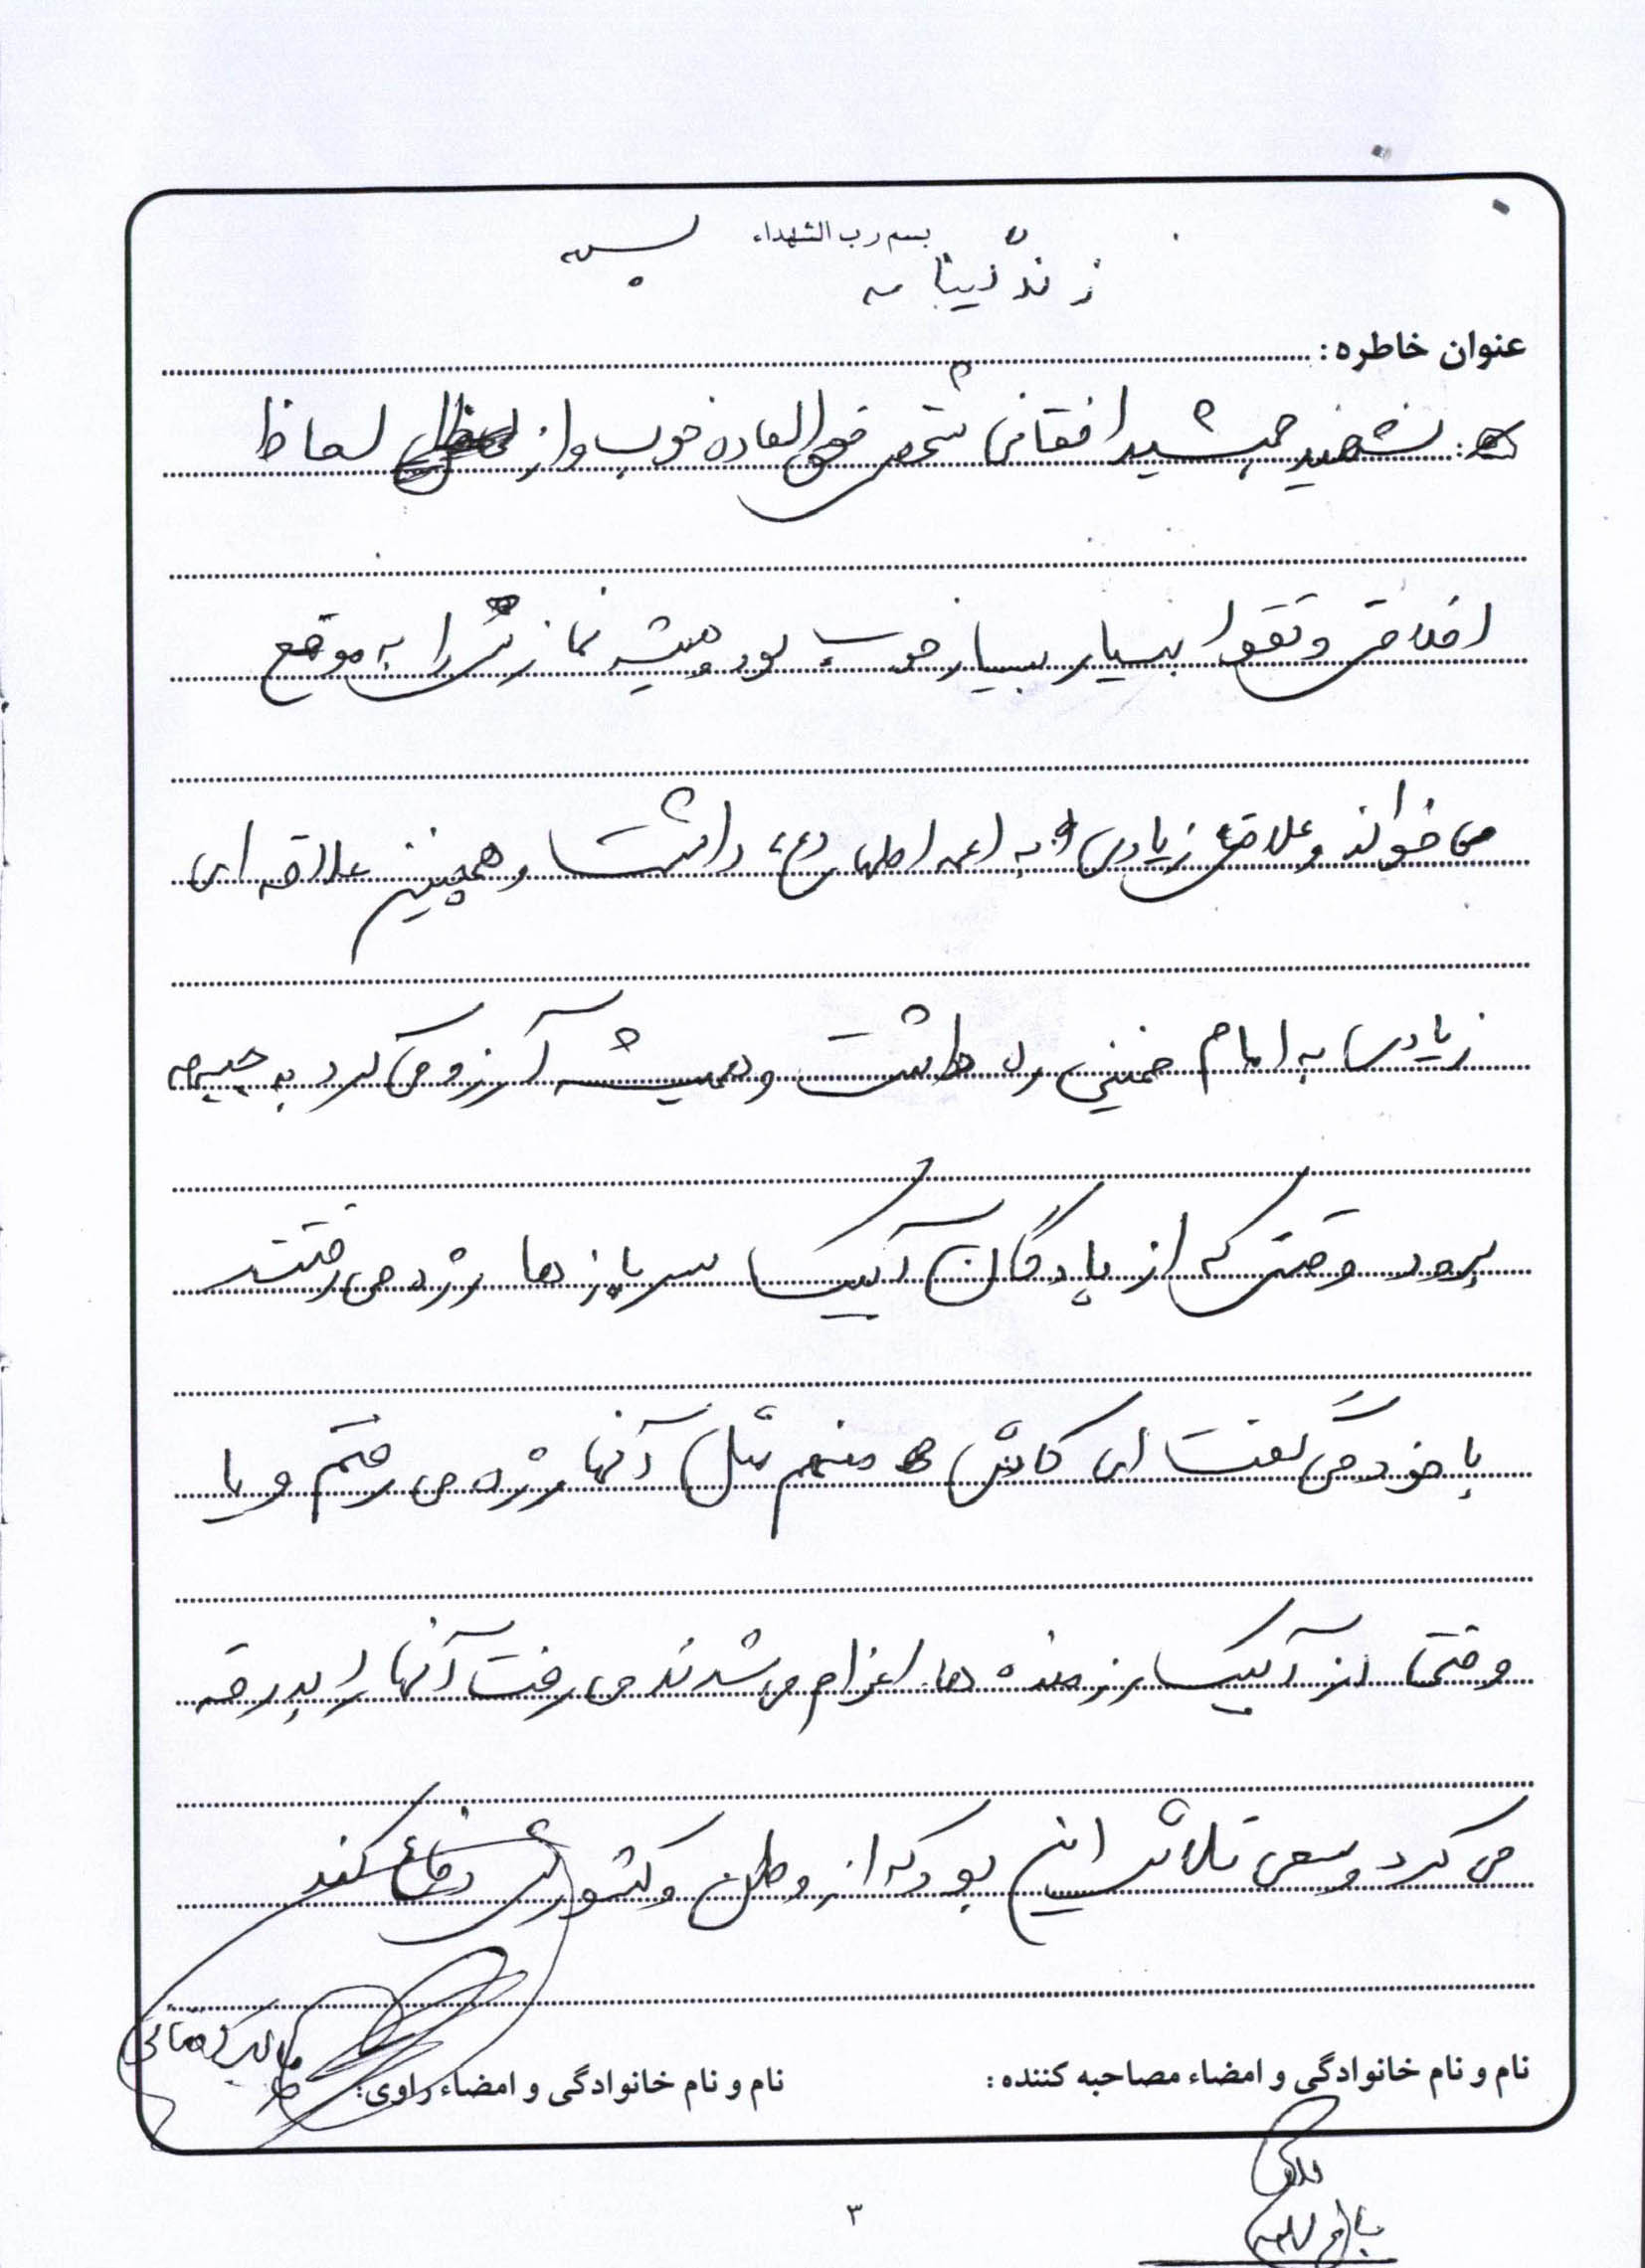 بسم رب الشهداء
زندگینامه
عنوان خاطره :
شهید جمشید افغانی شخص فوق العاده خوب و از لحاظ
اخلاقی و تقوا بسیار بسیار خوب بود و همیشه نمازش را به موقع
می خواند و علاقه زیادی به ائمه اطهار (ع) داشت و همچنین علاقه ای
زیادی به امام خمینی ره داشت و همیشه آرزو می کرد به جبهه
برود وقتی که از پادگان آبیک سربازها رژه می رفتند
با خود می گفت ای کاش منهم مثل آنها رژه می رفتم و یا
وقتی از آبیک رزمنده ها اعزام می شدند می رفت آنها را بدرقه
می کرد و سعی تلاش این بود که از وطن و کشورش دفاع کند
نام و نام خانوادگی و امضاء مصاحبه کننده :
نام و نام خانوادگی و امضاء راوی :
۳